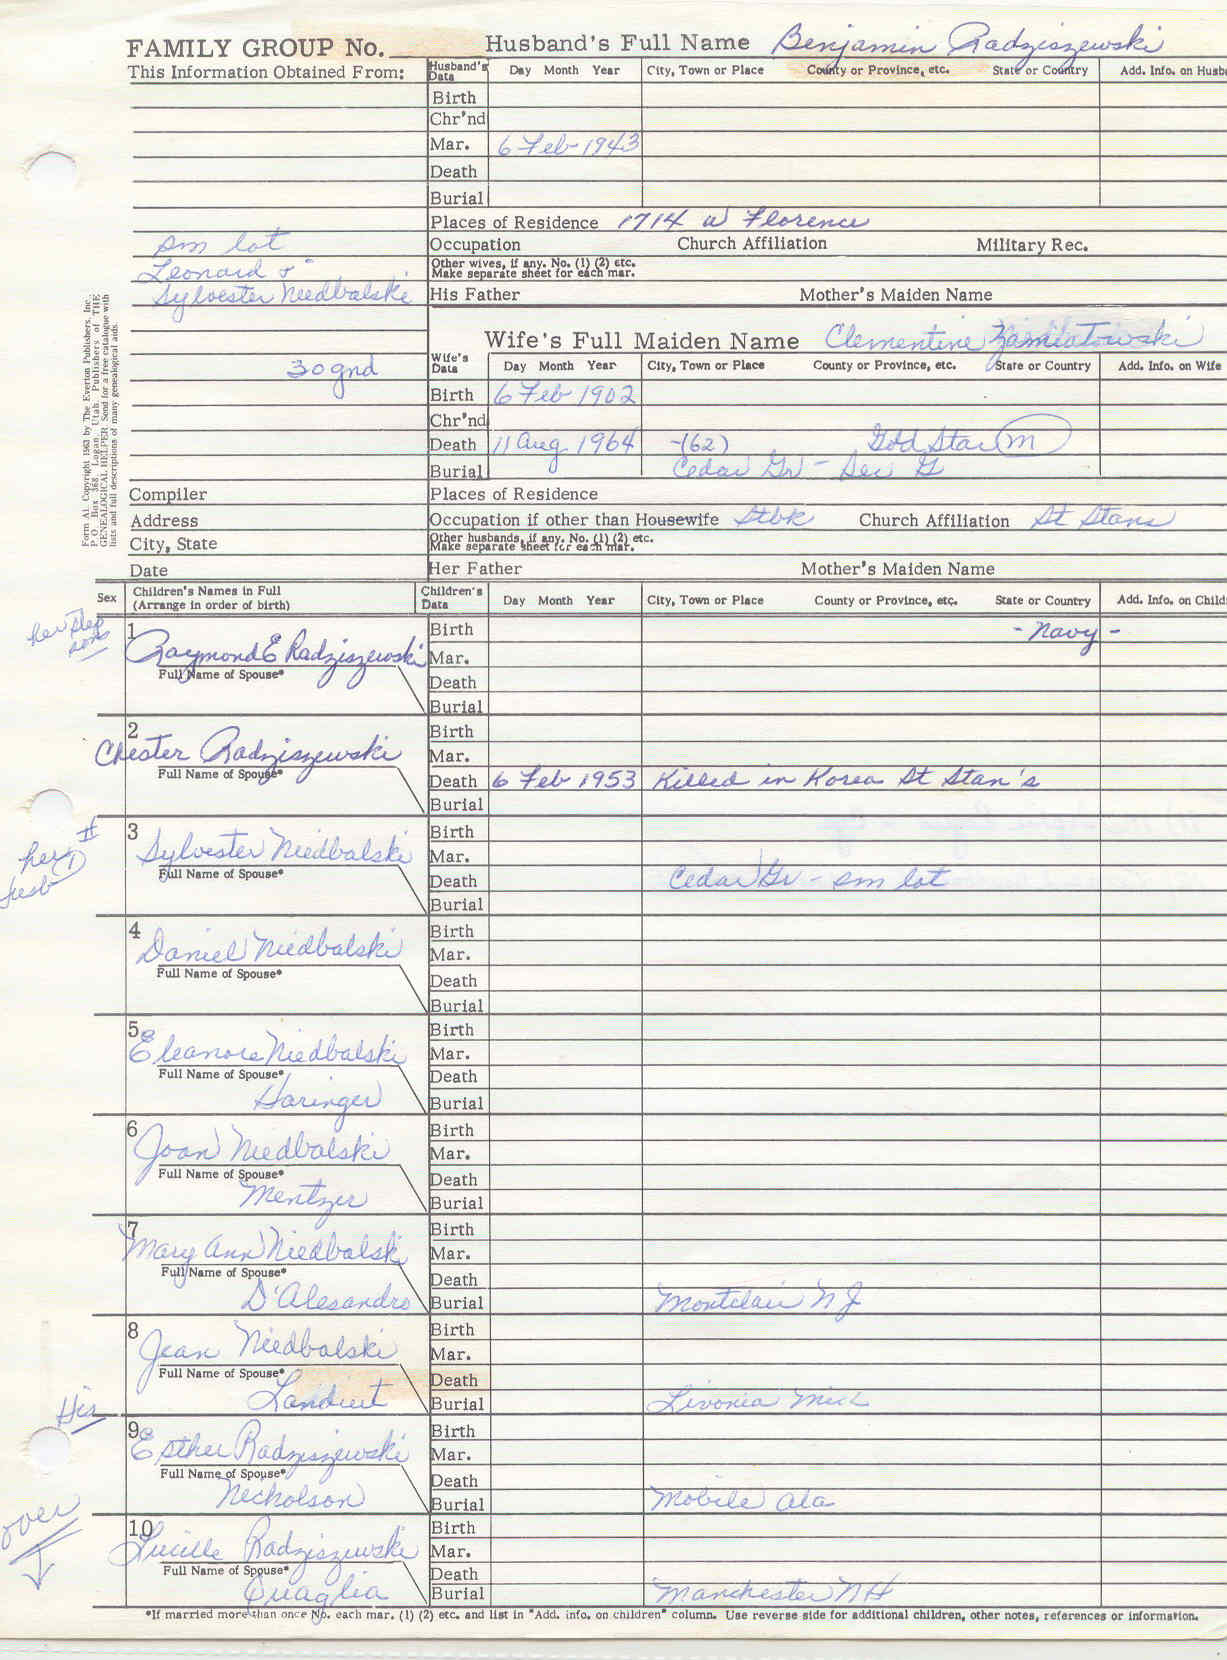 FAMILY GROUP No.
Husband's Full Name Benjamin Radziszewski
This Information Obtained From:
Husband's Data Day Month Year City, Town or Place County or Province, etc. State or Country Add. Info. on Husb
Birth
Chr'nd
Mar. 6 Feb 1943
Death
Burial
Places of Residence 1714 W Florence
sm lot
Occupation Church Affiliation Military Rec.
Leonard &
Other wives, if any. No. (1) (2) etc.
Make separate sheet for each mar.
Sylvester Niedbalski
His Father Mother's Maiden Name
Wife's Full Maiden Name Clementine Zamiatowski
30 gnd
Wife's Data Day Month Year City, Town or Place County or Province, etc. State or Country Add. Info. on Wife
Birth 6 Feb 1902
Chr'nd
Death 11 Aug 1964 -(62) Gold Star M
Burial Cedar Gr - Sec G
Form A1. Copyright 1963 by The Everton Publishers, Inc.,
P. O. Box 368, Logan, Utah. Publishers of THE
GENEALOGICAL HELPER. Send for a free catalogue with
lists and full descriptions of many genealogical aids.
Compiler
Places of Residence
Address
Occupation if other than Housewife Stbk Church Affiliation St Stans
City, State
Other husbands, if any. No. (1) (2) etc.
Make separate sheet for each mar.
Date
Her Father Mother's Maiden Name
Sex Children's Names in Full
(Arrange in order of birth)
Children's Data Day Month Year City, Town or Place County or Province, etc. State or Country Add. Info. on Child
her step
sons
1 Birth - Navy -
Raymond E Radziszewski Mar.
Full Name of Spouse* Death
Burial
2 Birth
Chester Radziszewski Mar.
Full Name of Spouse* Death 6 Feb 1953 Killed in Korea St Stan's
Burial
her 1
husb
3 Birth
Sylvester Niedbalski Mar.
Full Name of Spouse* Death Cedar Gr - sm lot
Burial
4 Birth
Daniel Niedbalski Mar.
Full Name of Spouse* Death
Burial
5 Birth
Eleanore Niedbalski Mar.
Full Name of Spouse* Death
Haringer Burial
6 Birth
Joan Niedbalski Mar.
Full Name of Spouse* Death
Mentzer Burial
7 Birth
Mary Ann Niedbalski Mar.
Full Name of Spouse* Death
D'Alesandro Burial Montclair NJ
8 Birth
Jean Niedbalski Mar.
Full Name of Spouse* Death
Burial Livonia Mich
His
9 Birth
Esther Radziszewski Mar.
Full Name of Spouse* Death
Nicholson Burial Mobile Ala
over
10 Birth
Lucille Radziszewski Mar.
Full Name of Spouse* Death
Quaglia Burial Manchester NH
*If married more than once No. each mar. (1) (2) etc. and list in "Add. info. on children" column. Use reverse side for additional children, other notes, references or information.